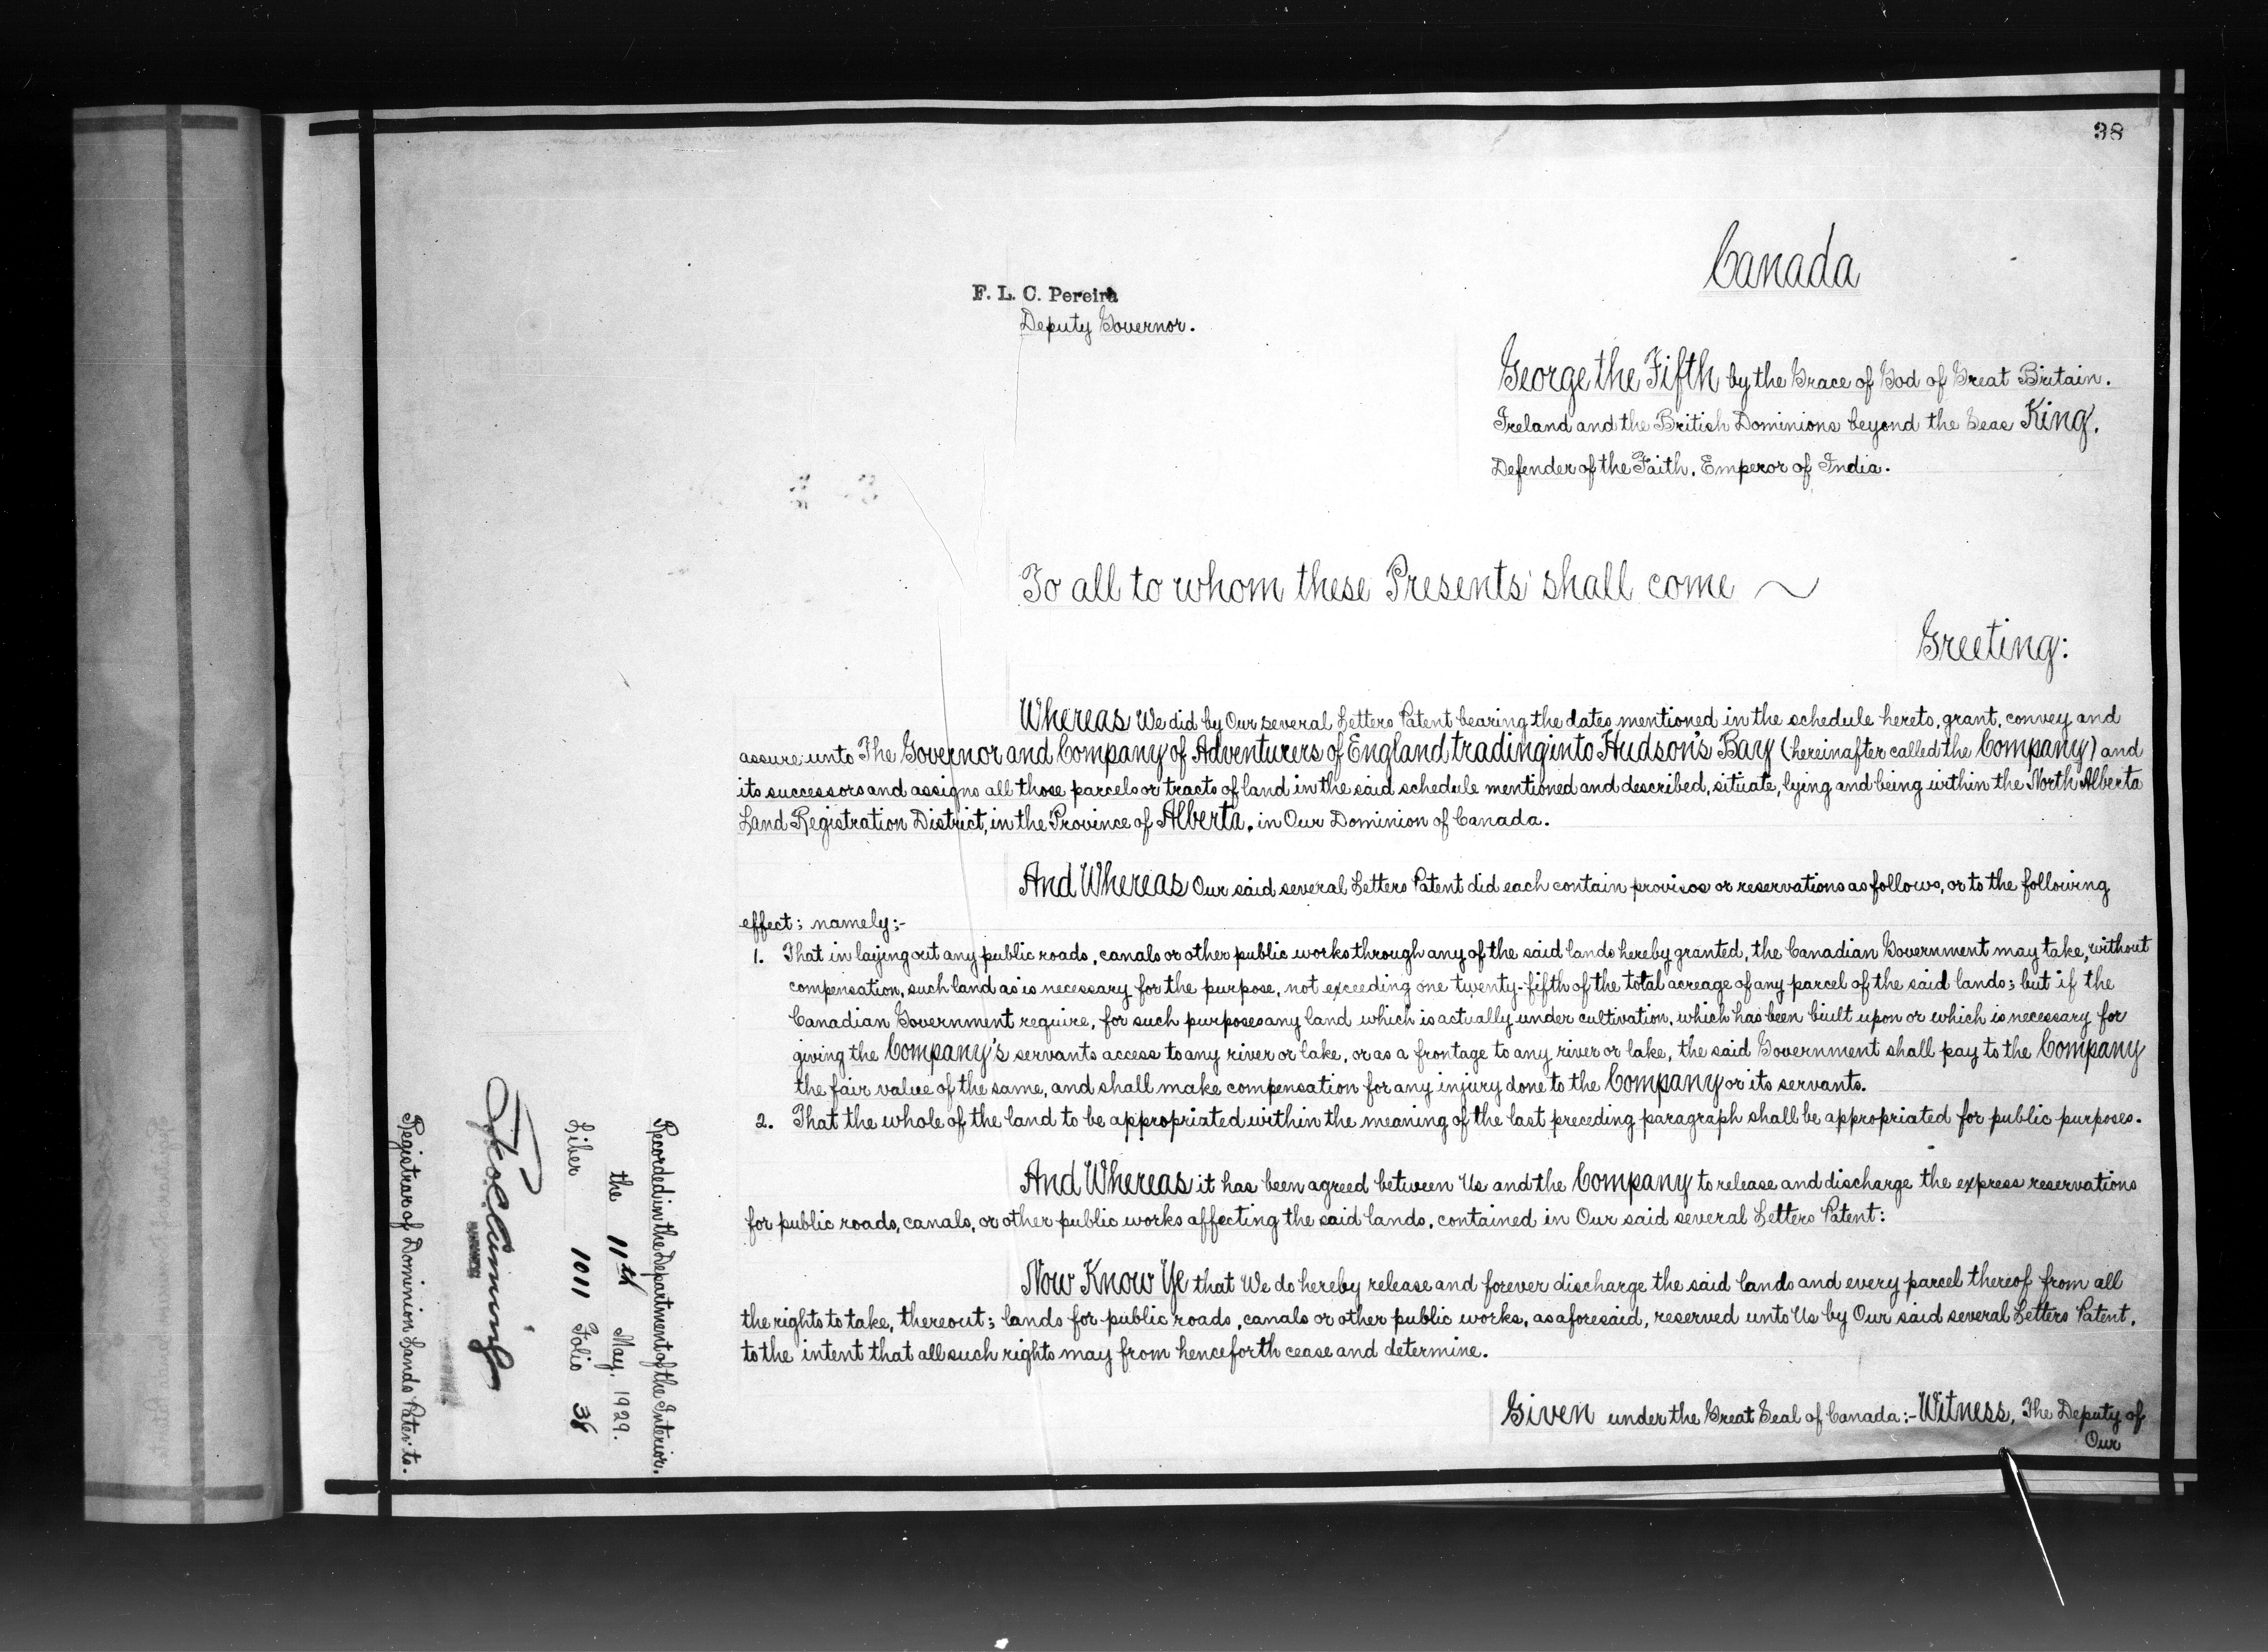 38
Canada
F. L. C. Pereira
Deputy Governor.
George the Fifth by the Grace of God of Great Britain.
Ireland and the British Dominions beyond the Seas King,
Defender of the Faith, Emperor of India.
To all to whom these Presents shall come
Greeting:
Whereas We did by Our several Letters Patent bearing the dates mentioned in the schedule hereto, grant, convey and
assure unto The Governor and Company of Adventurers of England trading into Hudson's Bay (hereinafter called the Company) and
its successors and assigns all those parcels or tracts of land in the said schedule mentioned and described, situate, lying and being within the North Alberta
Land Registration District, in the Province of Alberta, in Our Dominion of Canada.
And Whereas Our said several Letters Patent did each contain provisos or reservations as follows, or to the following
effect; namely:-
1. That in laying out any public roads, canals or other public works through any of the said lands hereby granted, the Canadian Government may take, without
compensation, such land as is necessary for the purpose, not exceeding one twenty-fifth of the total acreage of any parcel of the said lands; but if the
Canadian Government require, for such purposes any land which is actually under cultivation, which has been built upon or which is necessary for
giving the Company's servants access to any river or lake, or as a frontage to any river or lake, the said Government shall pay to the Company
the fair value of the same, and shall make compensation for any injury done to the Company or its servants.
2. That the whole of the land to be appropriated within the meaning of the last preceding paragraph shall be appropriated for public purposes.
And Whereas it has been agreed between Us and the Company to release and discharge the express reservations
for public roads, canals, or other public works affecting the said lands, contained in Our said several Letters Patent:
Now Know Ye that We do hereby release and forever discharge the said lands and every parcel thereof from all
the rights to take, thereout; lands for public roads, canals or other public works, as aforesaid, reserved unto Us by Our said several Letters Patent,
to the intent that all such rights may from henceforth cease and determine.
Given under the Great Seal of Canada:- Witness, The Deputy of
Our
Recorded in the Department of the Interior.
the 11th May, 1929.
Liber 1011 Folio 38
Registrar of Dominion Lands Patents.